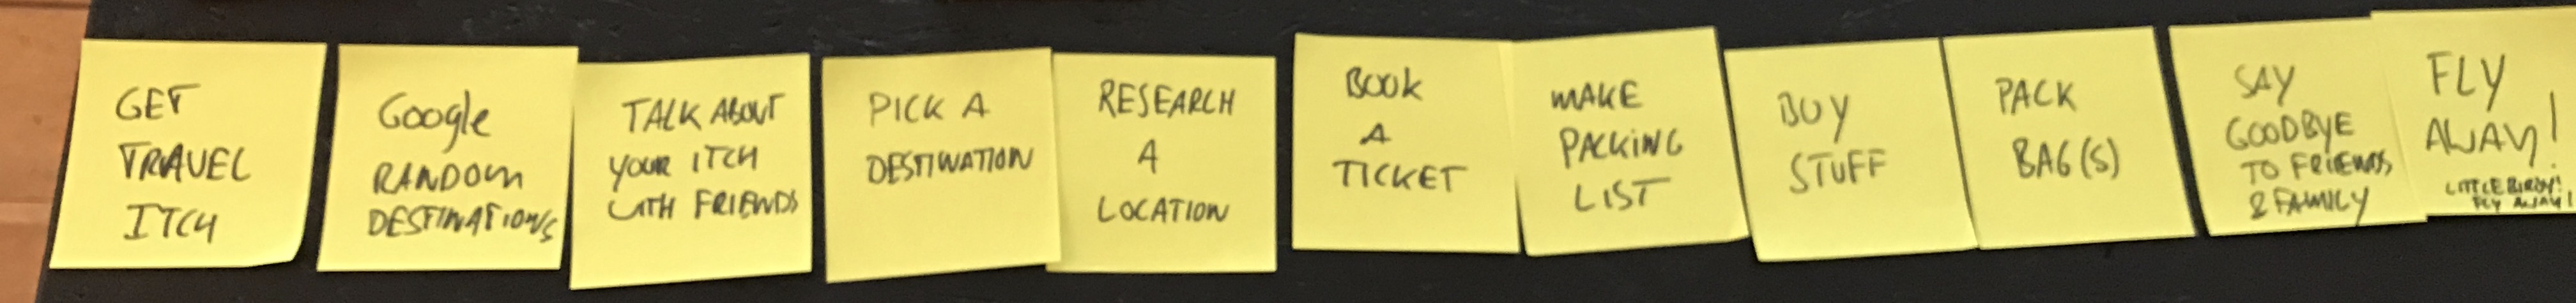 GET
TRAVEL
ITCH
Google
RANDOM
DESTINATIONS
TALK ABOUT
YOUR ITCH
WITH FRIENDS
PICK A
DESTINATION
RESEARCH
A
LOCATION
BOOK
A
TICKET
MAKE
PACKING
LIST
BUY
STUFF
PACK
BAG(S)
SAY
GOODBYE
TO FRIENDS
& FAMILY
FLY
AWAY!
LITTLE BIRDY!
FLY AWAY!